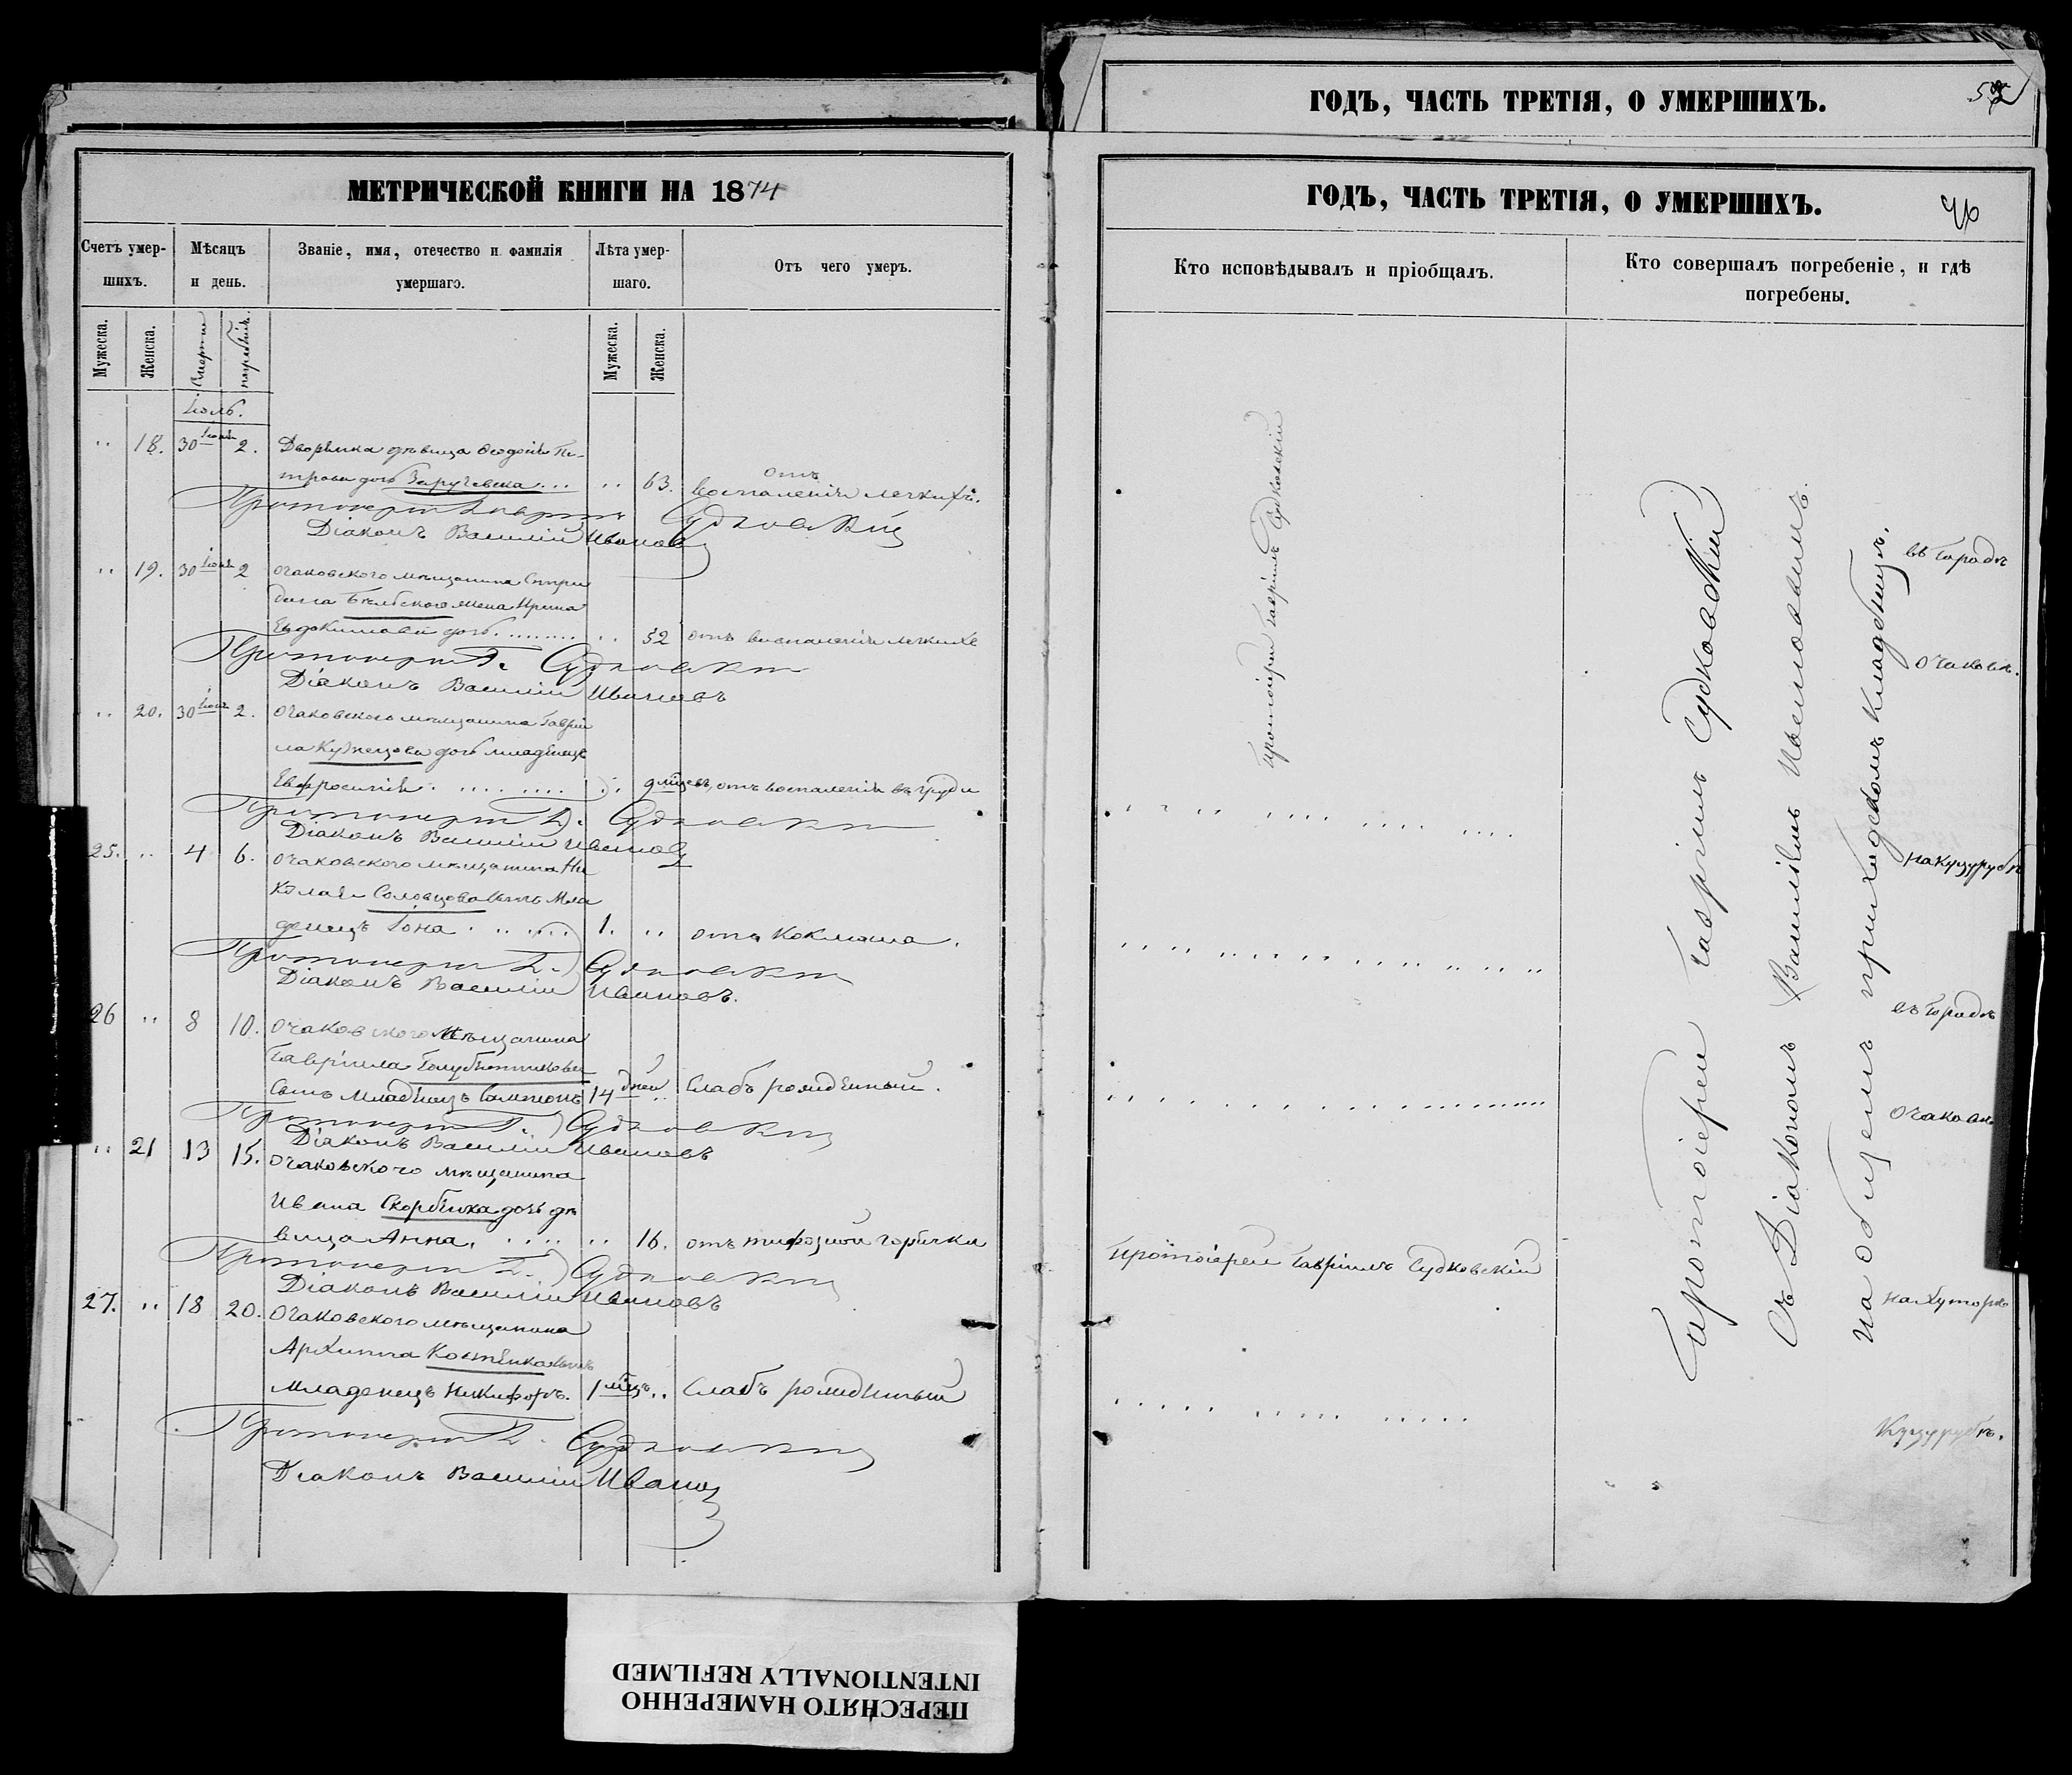 МЕТРИЧЕСКОЙ КНИГИ НА 1874
Счетъ умер-
шихъ.
Мѣсяцъ
и день.
Званіе, имя, отечество и фамилія
умершаго.
Лѣта умер-
шаго.
Отъ чего умеръ.
Мужеска.
Женска.
Смерти
погребенія.
Мужеска.
Женска.
Іюль.
" 18. 30 Іюня 2. Дворянка дѣвица Ѳеодосія Пе-
трова дочь Заручевска ... " 63. отъ
воспаленія легкихъ.
Протоіерей Гавріилъ Судковскій
Діаконъ Василій Ивановъ
" 19. 30 Іюня 2 Очаковского мѣщанина Спири
дона Бѣльского жена Ирина
Евдокимова дочь ......... " 52 отъ воспаленія легкихъ
Протоіерей Г. Судковскій
Діаконъ Василій Ивановъ
" 20. 30 Іюня 2. Очаковского мѣщанина Гаврі
ла Кузнецова дочь младенецъ
Евфросинія ........ " 9 мѣсцевъ, отъ воспаленія въ груди
Протоіерей Г. Судковскій
Діаконъ Василій Ивановъ
25. " 4 6. Очаковского мѣщанина Ни
колая Соловцова сынъ Мла
денецъ Іона ..... 1. " отъ коклюша.
Протоіерей Г. Судковскій
Діаконъ Василій Ивановъ.
26 " 8 10. Очаковского Мѣщанина
Гавріила Голубятникова
сынъ младенецъ Сампсонъ 14 дней " слабъ рожденный.
Протоіерей Г. Судковскій
Діаконъ Василій Ивановъ
" 21 13 15. Очаковского мѣщанина
Ивана Скорбенка дочь дѣ
вица Анна. ..... " 16. отъ тифозной горячки
Протоіерей Г. Судковскій
Діаконъ Василій Ивановъ
27. " 18 20. Очаковского мѣщанина
Архиппа Костенка сынъ
Младенецъ Никифоръ. 1 мѣцъ " слабъ рожденный
Протоіерей Г. Судковскій
Діаконъ Василій Ивановъ
ГОДЪ, ЧАСТЬ ТРЕТІЯ, О УМЕРШИХЪ.
ГОДЪ, ЧАСТЬ ТРЕТІЯ, О УМЕРШИХЪ.
Кто исповѣдывалъ и пріобщалъ.
Кто совершалъ погребеніе, и гдѣ
погребены.
Протоіерей Гавріилъ Судковскій
Протоіерей Гавріилъ Судковскій
Протоіерей Гавріилъ Судковскій
съ Діакономъ Василіемъ Ивановымъ
на общемъ приходскомъ кладбищѣ.
въ городѣ
Очаковѣ.
на Куцурубѣ
въ городѣ
Очаковѣ
на Хуторѣ
Куцурубѣ.
ПЕРЕСНЯТО НАМЕРЕННО
INTENTIONALLY REFILMED